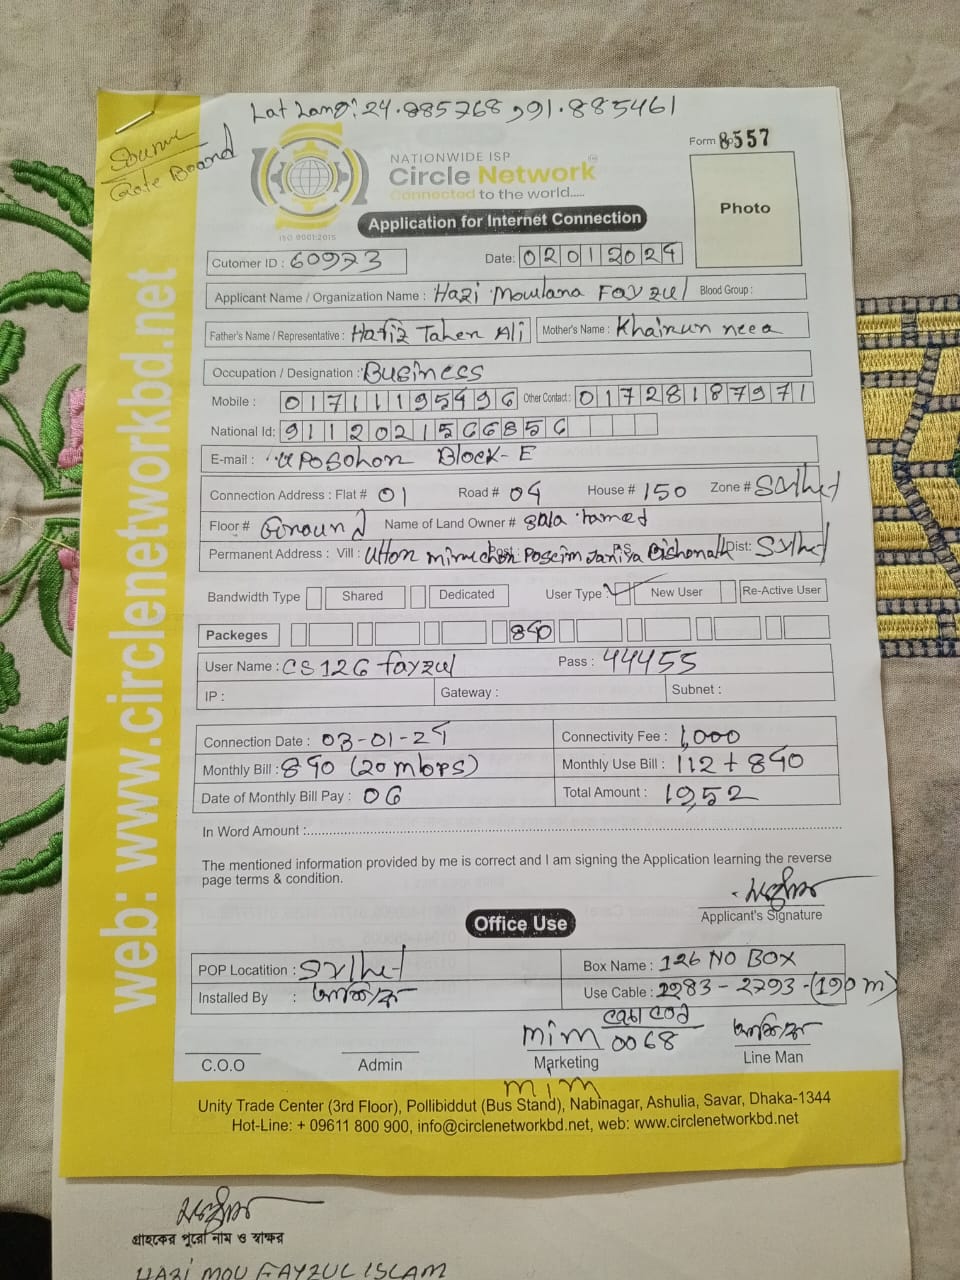 Lat Lang: 24.885768, 91.885461
Gate Board
Form 8557
NATIONWIDE ISP
Circle Network
Connected to the world.....
ISO 9001:2015
Application for Internet Connection
Photo
web: www.circlenetworkbd.net
Cutomer ID : 60973
Date: 02012024
Applicant Name / Organization Name : Hazi Moulana Fayzul Blood Group :
Father's Name / Representative : Hafiz Taher Ali Mother's Name : Khairun neea
Occupation / Designation : Business
Mobile : 01711195496 Other Contact : 01728187971
National Id: 9112021566856
E-mail : uposohon Block-E
Connection Address : Flat # 01 Road # 04 House # 150 Zone # Sylhet
Floor # Ground Name of Land Owner #
Permanent Address : Vill : Post: P.S: Bishonath Dist: Sylhet
Bandwidth Type Shared Dedicated User Type : New User Re-Active User
Packeges 840
User Name : CS126 fayzul Pass : 44455
IP : Gateway : Subnet :
Connection Date : 03-01-24 Connectivity Fee : 1,000
Monthly Bill : 840 (20 mbps) Monthly Use Bill : 112 + 840
Date of Monthly Bill Pay : 06 Total Amount : 1952
In Word Amount :
The mentioned information provided by me is correct and I am signing the Application learning the reverse
page terms & condition.
Applicant's Signature
Office Use
POP Locatition : Sylhet Box Name : 126 NO BOX
Installed By : Use Cable : 2983 - 2793 - (190 m)
mim 0068
C.O.O Admin Marketing Line Man
mim
Unity Trade Center (3rd Floor), Pollibiddut (Bus Stand), Nabinagar, Ashulia, Savar, Dhaka-1344
Hot-Line: + 09611 800 900, info@circlenetworkbd.net, web: www.circlenetworkbd.net
গ্রাহকের পুরো নাম ও স্বাক্ষর
HAZI MOU FAYZUL ISLAM